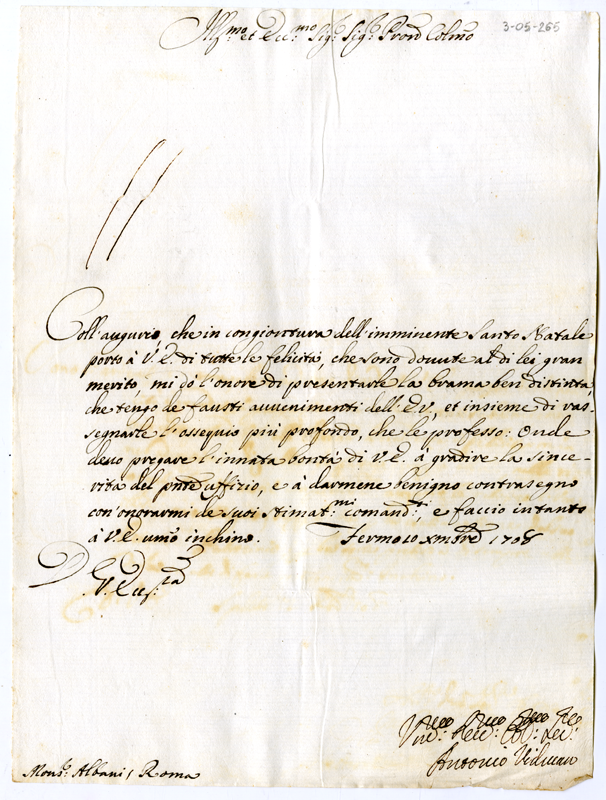 Ill.mo et Ecc.mo Sig.r Sig.r Pron Colmo
3-05-265
Coll'augurio, che in congiontura dell'imminente Santo Natale
porto à V.E. di tutte le felicità, che sono dovute al di lei gran
merito, mi dò l'onore di presentarle la brama ben distinta,
che tengo de fausti avvenimenti dell'E.V., et insieme di ras-
segnarle l'ossequio più profondo, che le professo: Onde
devo pregare l'innata bontà di V.E. à gradire la since-
rità del pnte uffizio, e à darmene benigno contrasegno
con onorarmi de suoi stimat.mi comand.ti, e faccio intanto
à V.E. umo inchino. Fermo 10 Xmbre 1708
D V. Ecc.za
Antonio Vidman
Mons.r Albani, Roma